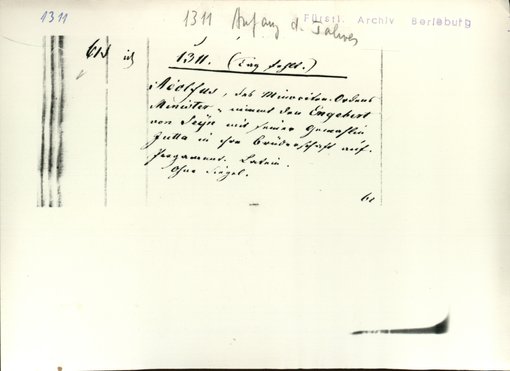 1311
1311 Anfang d. Jahres
Fürstl. Archiv Berleburg
1311. (Tag fehlt.)
Adolfus, des Minoriten-Ordens
Minister, nimmt den Engebert
von Seyn mit seiner Gemahlin
Jutta in ihre Brüderschaft auf.
Pergament. Latein.
Ohne Siegel.